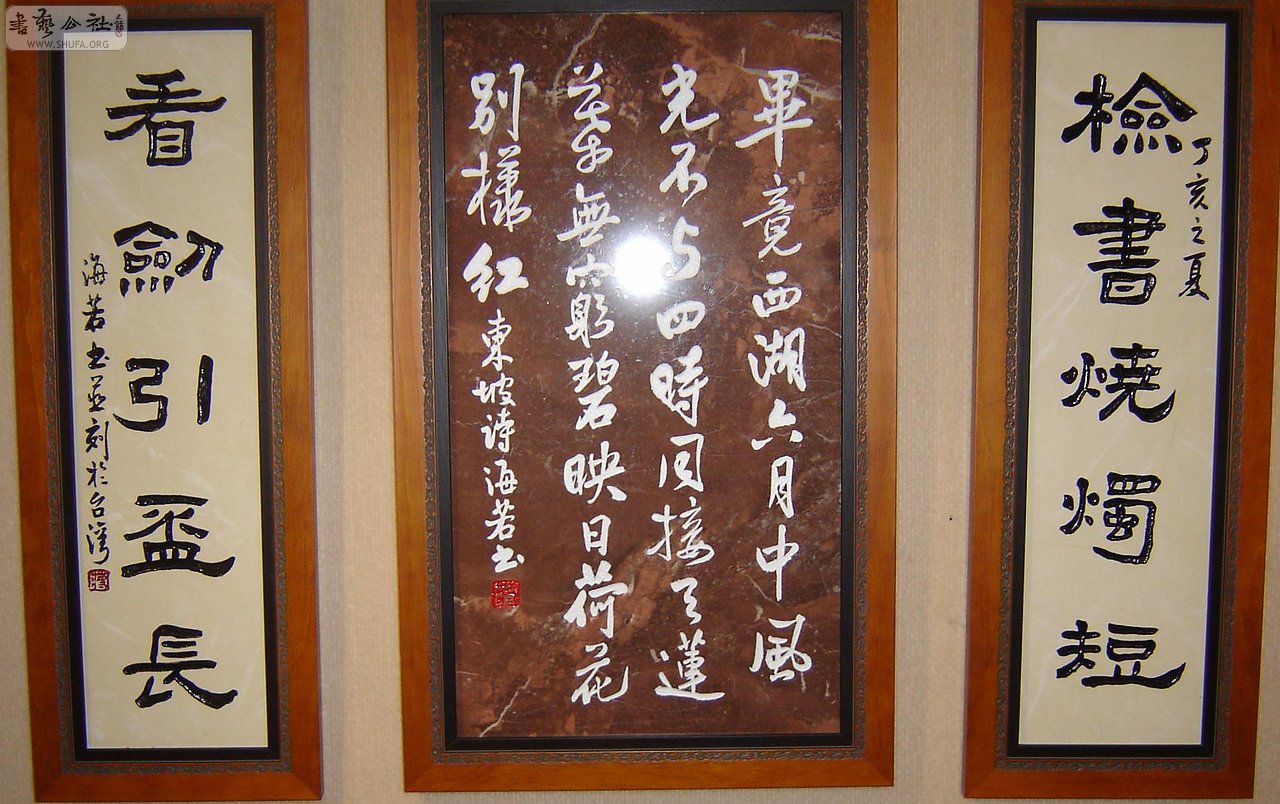 書藝公社
WWW.SHUFA.ORG
丁亥之夏
檢書燒燭短
畢竟西湖六月中風
光不与四時同接天蓮
葉無窮碧映日荷花
別樣紅 東坡詩海若书
看劍引盃長
海若书並刻於台灣